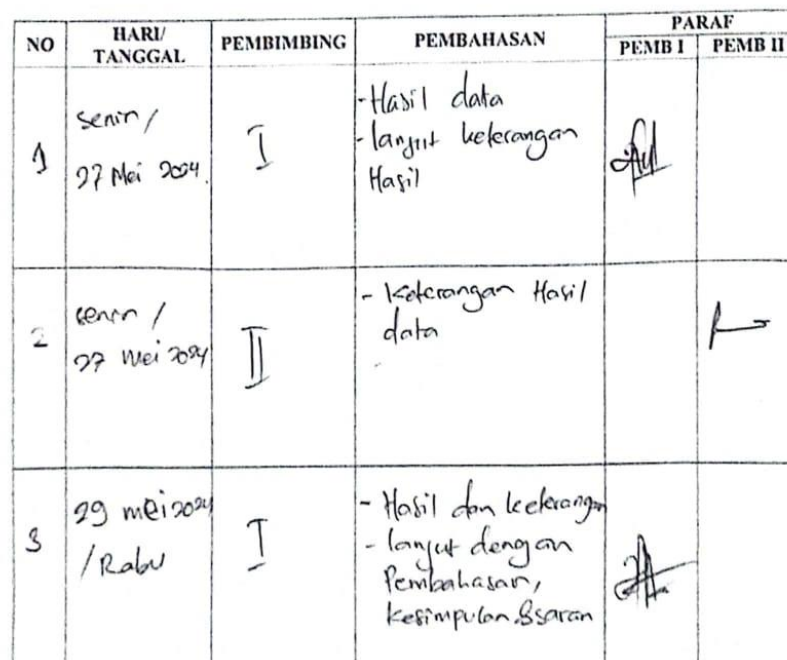 NO HARI/ TANGGAL PEMBIMBING PEMBAHASAN PARAF
PEMB I PEMB II
1 Senin / 27 Mei 2024. I
- Hasil data
- lanjut keterangan
Hasil
2 senin / 27 Mei 2024 II
- Keterangan Hasil
data
3 29 mei 2024 / Rabu I
- Hasil dan keterangan
- lanjut dengan
Pembahasan,
kesimpulan & saran